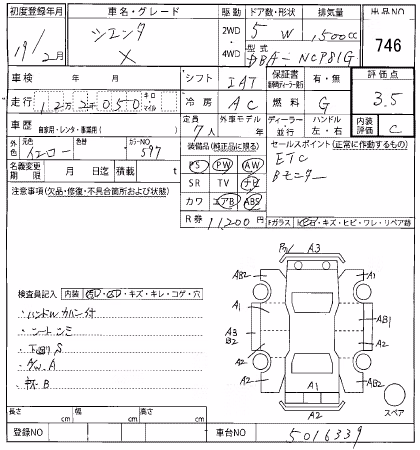 初度登録年月 車名・グレード 駆動 ドア数・形状 排気量 出品NO
19/2月 シエンタ X 2WD 4WD 5 W 1,500cc 746
型式 DBA-NCP81G
車検 年 月 シフト IAT 保証書 有・無 評価点 3.5
走行 122050 キロ マイル 冷房 AC 燃料 G 内装評価 C
車歴 自家用・レンタ・事業用( ) 定員 7人 外車モデル 年 ディーラー 並行 ハンドル 左・右
外色 元色 イエロー 色替 カラーNO 597 装備品(純正品に限る) セールスポイント(正常に作動するもの)
PS PW AW ETC
名義変更期限 月 日迄 積載 t SR TV ナビ Bモニター
注意事項(欠品・修復・不具合箇所および状態) カワ エアB ABS
R券 11,200円 Fガラス 石・キズ・ヒビ・ワレ・リペア跡
A3
AB2 A1
検査員記入 内装 キズ・キレ・コゲ・穴
・ハンドルカバー付
・シートシミ
・下廻りS
・A/W A
A1 A3 B2 AB1 A2
A2 A2
A1 AB2
A2 スペア
長さ cm 幅 cm 高さ cm
登録NO 車台NO 5016339